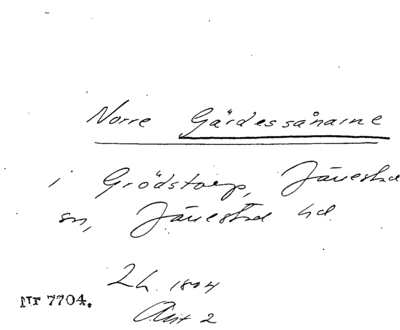 Norre Gärdessånarne
i Grödstorp, Järestad
sn, Järestad hd.
Lh. 1804
Akt 2
Nr 7704.